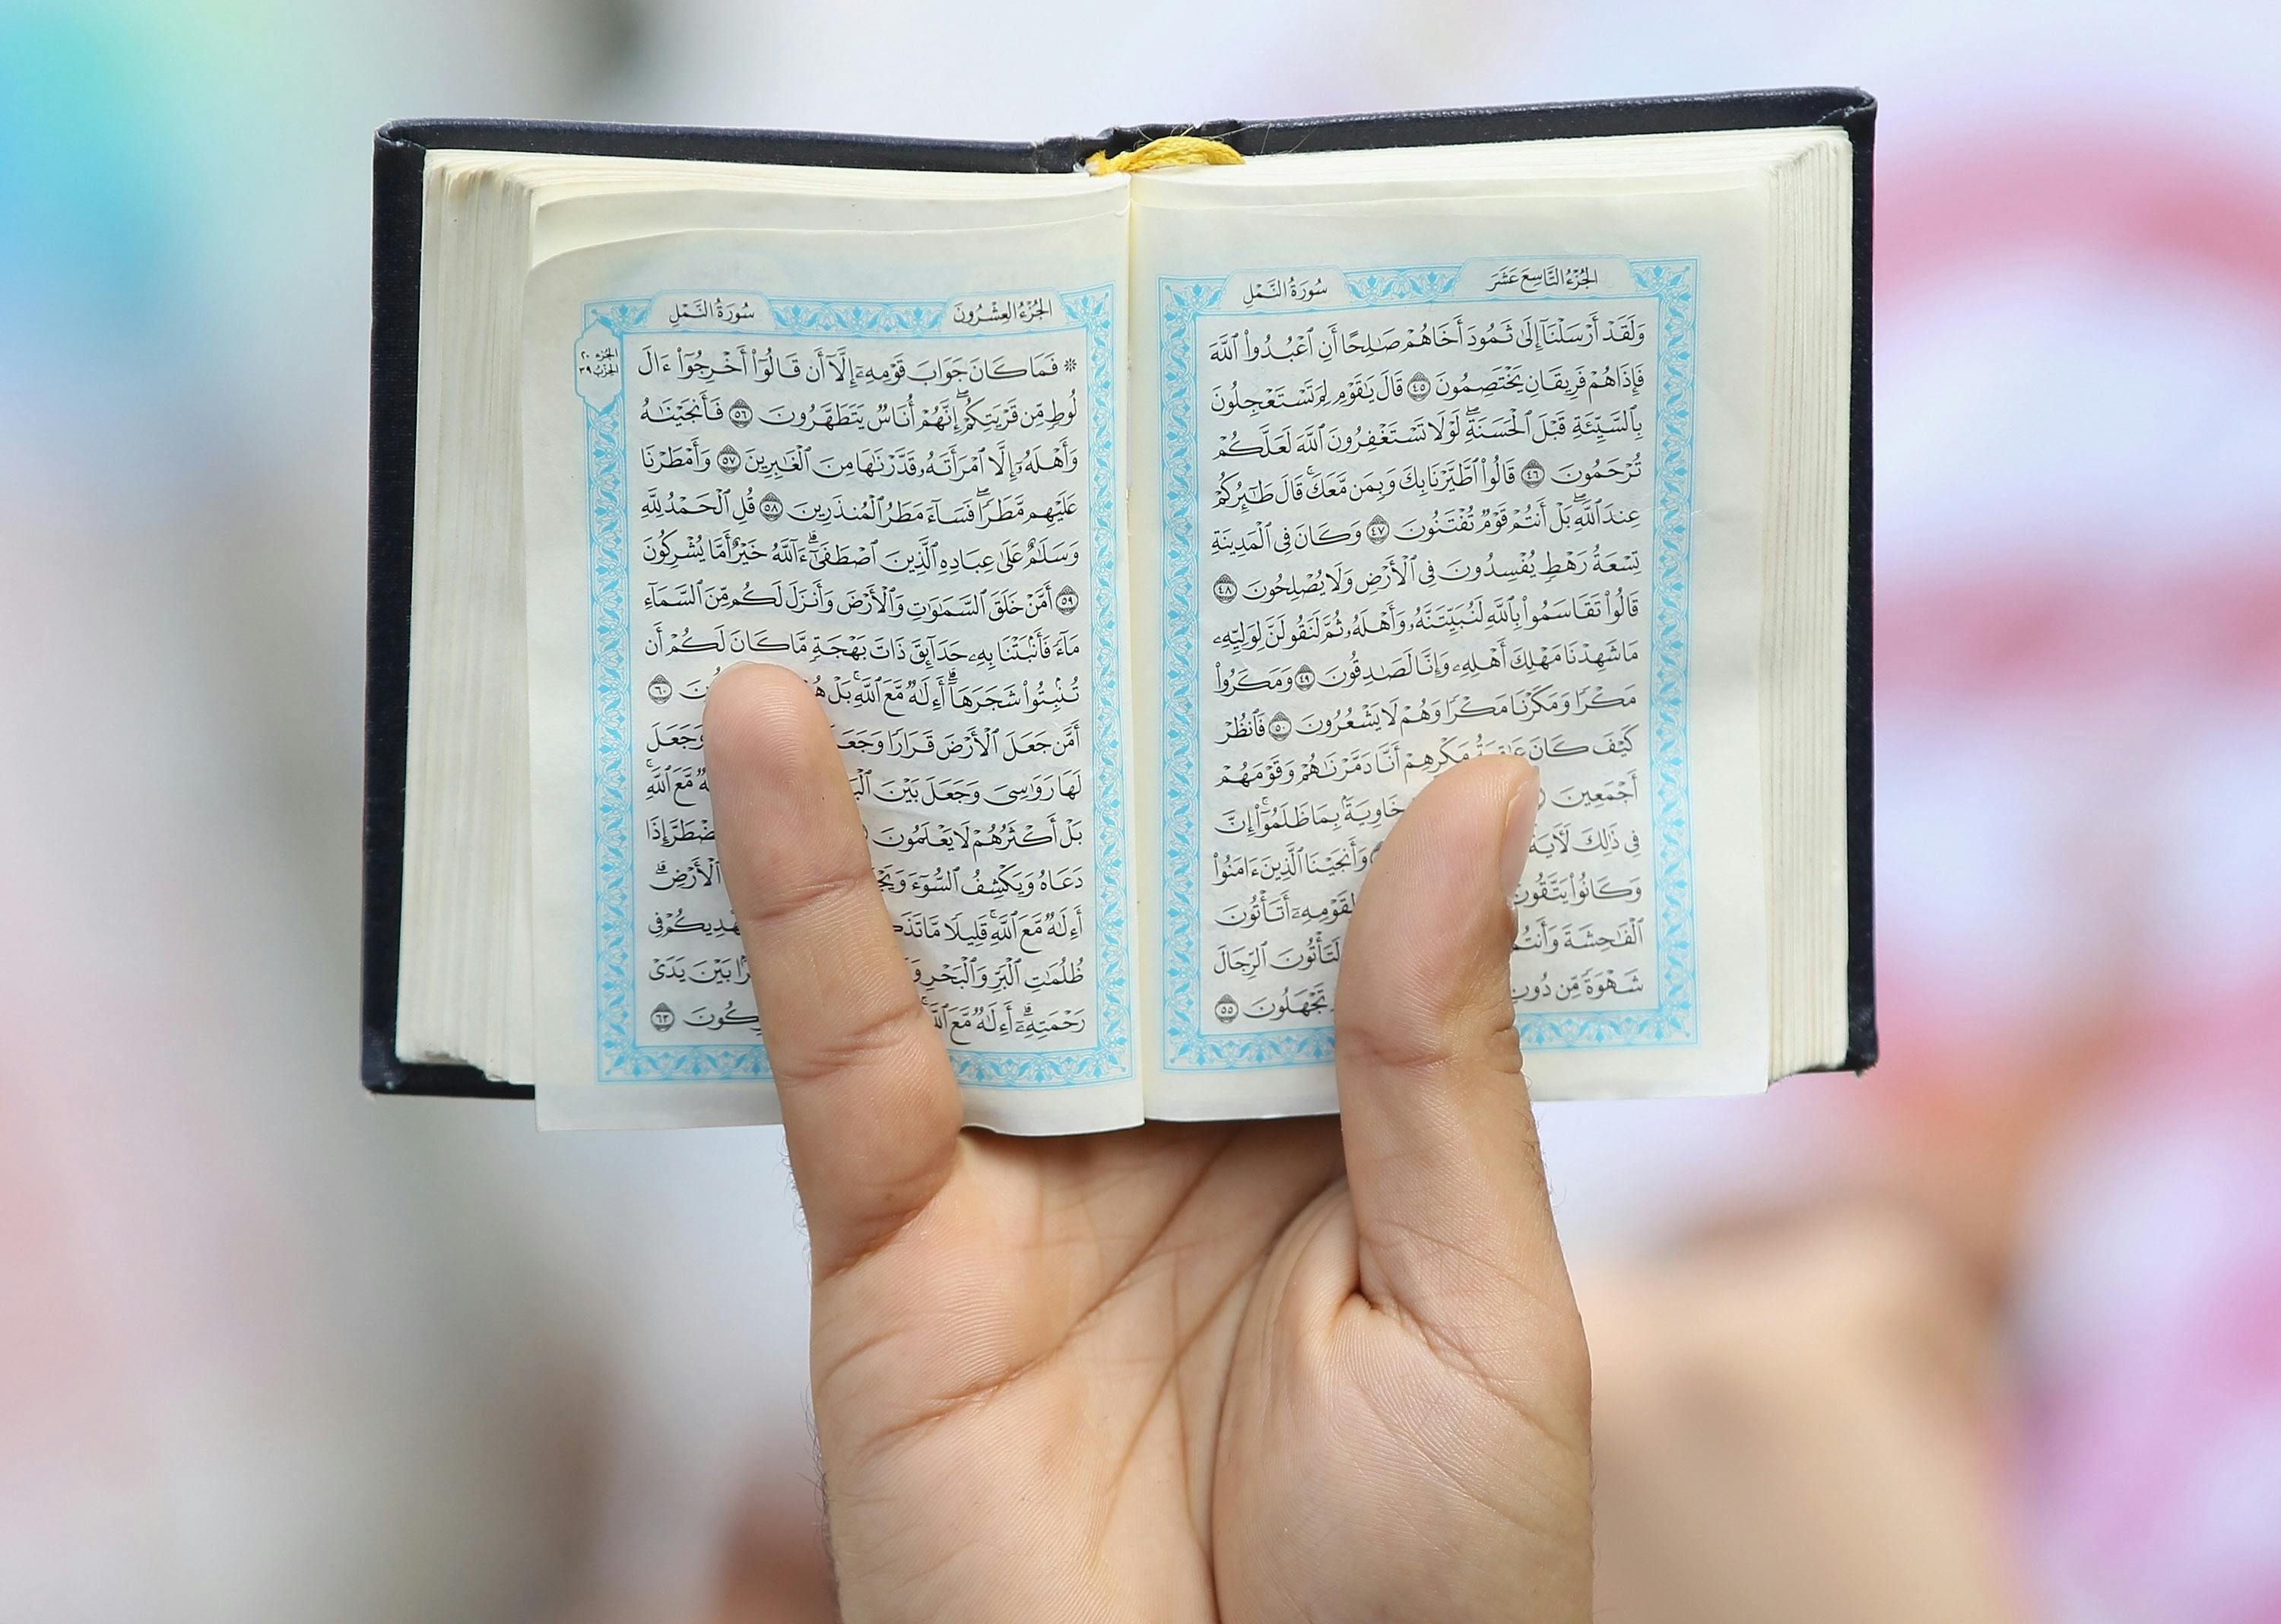 الجُزْءُ التَّاسِعَ عَشَرَ
سُورَةُ النَّمْلِ
وَلَقَدْ أَرْسَلْنَآ إِلَىٰ ثَمُودَ أَخَاهُمْ صَـٰلِحًا أَنِ ٱعْبُدُوا۟ ٱللَّهَ
فَإِذَا هُمْ فَرِيقَانِ يَخْتَصِمُونَ ٤٥ قَالَ يَـٰقَوْمِ لِمَ تَسْتَعْجِلُونَ
بِٱلسَّيِّئَةِ قَبْلَ ٱلْحَسَنَةِ ۖ لَوْلَا تَسْتَغْفِرُونَ ٱللَّهَ لَعَلَّكُمْ
تُرْحَمُونَ ٤٦ قَالُوا۟ ٱطَّيَّرْنَا بِكَ وَبِمَن مَّعَكَ ۚ قَالَ طَـٰٓئِرُكُمْ
عِندَ ٱللَّهِ ۖ بَلْ أَنتُمْ قَوْمٌ تُفْتَنُونَ ٤٧ وَكَانَ فِى ٱلْمَدِينَةِ
تِسْعَةُ رَهْطٍ يُفْسِدُونَ فِى ٱلْأَرْضِ وَلَا يُصْلِحُونَ ٤٨
قَالُوا۟ تَقَاسَمُوا۟ بِٱللَّهِ لَنُبَيِّتَنَّهُۥ وَأَهْلَهُۥ ثُمَّ لَنَقُولَنَّ لِوَلِيِّهِۦ
مَا شَهِدْنَا مَهْلِكَ أَهْلِهِۦ وَإِنَّا لَصَـٰدِقُونَ ٤٩ وَمَكَرُوا۟
مَكْرًا وَمَكَرْنَا مَكْرًا وَهُمْ لَا يَشْعُرُونَ ٥٠ فَٱنظُرْ
كَيْفَ كَانَ عَـٰقِبَةُ مَكْرِهِمْ أَنَّا دَمَّرْنَـٰهُمْ وَقَوْمَهُمْ
أَجْمَعِينَ خَاوِيَةًۢ بِمَا ظَلَمُوٓا۟ ۗ إِنَّ
فِى ذَٰلِكَ لَـَٔايَةً وَأَنجَيْنَا ٱلَّذِينَ ءَامَنُوا۟
وَكَانُوا۟ يَتَّقُونَ لِقَوْمِهِۦٓ أَتَأْتُونَ
ٱلْفَـٰحِشَةَ وَأَنتُمْ لَتَأْتُونَ ٱلرِّجَالَ
شَهْوَةً مِّن دُونِ تَجْهَلُونَ ٥٥
الجُزْءُ العِشْرُونَ
سُورَةُ النَّمْلِ
الجزء ٢٠
الحزب ٣٩
۞ فَمَا كَانَ جَوَابَ قَوْمِهِۦٓ إِلَّآ أَن قَالُوٓا۟ أَخْرِجُوٓا۟ ءَالَ
لُوطٍ مِّن قَرْيَتِكُمْ ۖ إِنَّهُمْ أُنَاسٌ يَتَطَهَّرُونَ ٥٦ فَأَنجَيْنَـٰهُ
وَأَهْلَهُۥٓ إِلَّا ٱمْرَأَتَهُۥ قَدَّرْنَـٰهَا مِنَ ٱلْغَـٰبِرِينَ ٥٧ وَأَمْطَرْنَا
عَلَيْهِم مَّطَرًا ۖ فَسَآءَ مَطَرُ ٱلْمُنذَرِينَ ٥٨ قُلِ ٱلْحَمْدُ لِلَّهِ
وَسَلَـٰمٌ عَلَىٰ عِبَادِهِ ٱلَّذِينَ ٱصْطَفَىٰٓ ۗ ءَآللَّهُ خَيْرٌ أَمَّا يُشْرِكُونَ
٥٩ أَمَّنْ خَلَقَ ٱلسَّمَـٰوَٰتِ وَٱلْأَرْضَ وَأَنزَلَ لَكُم مِّنَ ٱلسَّمَآءِ
مَآءً فَأَنۢبَتْنَا بِهِۦ حَدَآئِقَ ذَاتَ بَهْجَةٍ مَّا كَانَ لَكُمْ أَن
تُنۢبِتُوا۟ شَجَرَهَآ ۗ أَءِلَـٰهٌ مَّعَ ٱللَّهِ ۚ بَلْ ٦٠
أَمَّن جَعَلَ ٱلْأَرْضَ قَرَارًا وَجَعَلَ وَجَعَلَ
لَهَا رَوَٰسِىَ وَجَعَلَ بَيْنَ مَّعَ ٱللَّهِ ۚ
بَلْ أَكْثَرُهُمْ لَا يَعْلَمُونَ إِذَا
دَعَاهُ وَيَكْشِفُ ٱلسُّوٓءَ ٱلْأَرْضِ ۗ
أَءِلَـٰهٌ مَّعَ ٱللَّهِ ۚ قَلِيلًا مَّا فِى
ظُلُمَـٰتِ ٱلْبَرِّ وَٱلْبَحْرِ بَيْنَ يَدَىْ
رَحْمَتِهِۦٓ ۗ أَءِلَـٰهٌ مَّعَ ٱللَّهِ ۚ ٦٣